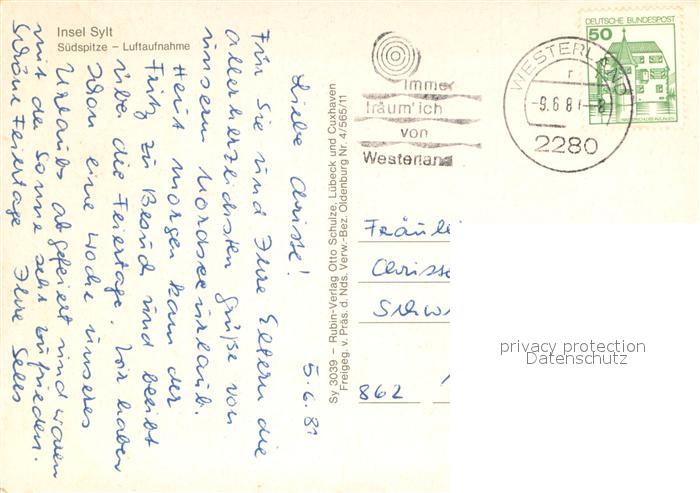 Insel Sylt
Südspitze – Luftaufnahme
5.6.81
Liebe Crisse!
Für Sie und Ihre Eltern die
allerherzlichsten Grüße von
unserm Nordseeurlaub.
Heut morgen kam der
Fritz zu Besuch und bleibt
über die Feiertage. Wir haben
schon eine Woche unseres
Urlaubs abgefeiert und waren
mit der Sonne sehr zufrieden.
Schöne Feiertage Ihre
Sy 3039 – Rubin-Verlag Otto Schulze, Lübeck und Cuxhaven
Freigeg. v. Präs. d. Nds. Verw.-Bez. Oldenburg Nr. 4/565/11
Immer
träum' ich
von
Westerland
WESTERLAND
-9.6.81-8
2280
DEUTSCHE BUNDESPOST
50
Fräulei
Crisse
Schwi
862
privacy protection
Datenschutz